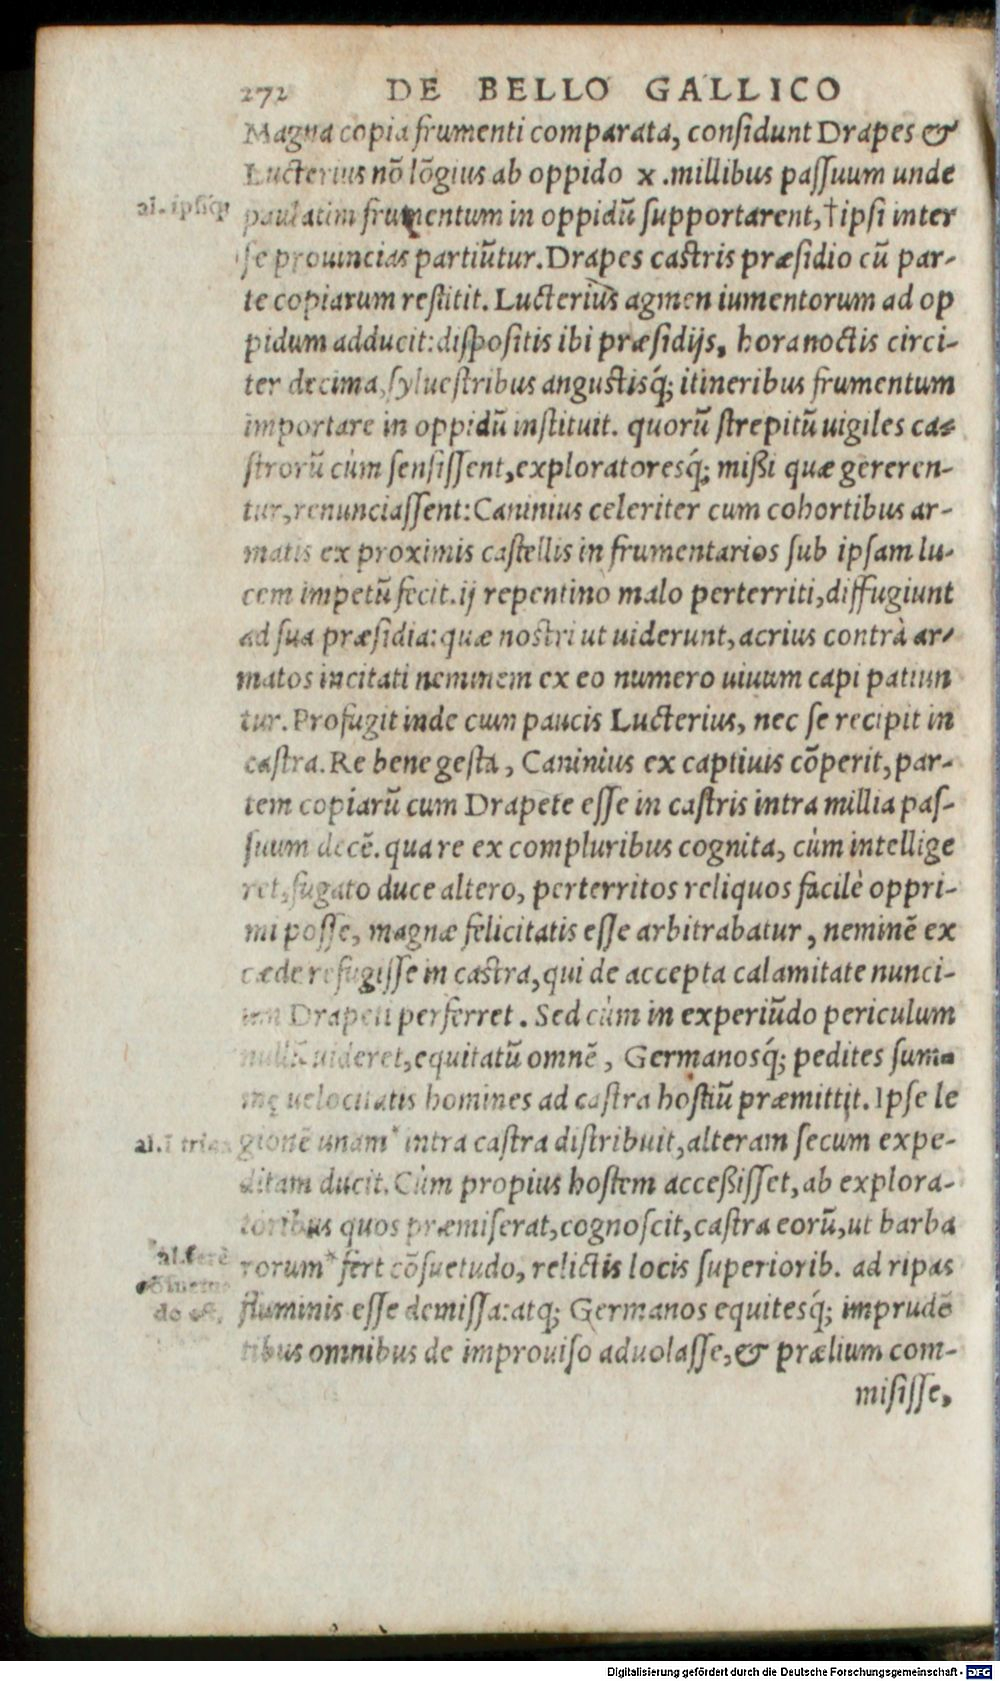 272 DE BELLO GALLICO
Magna copia frumenti comparata, considunt Drapes &
Lucterius nō lōgius ab oppido x .millibus passuum unde
al. ipsiq;
paulatim frumentum in oppidū supportarent, †ipsi inter
se prouincias partiūtur. Drapes castris præsidio cū par-
te copiarum restitit. Lucterius agmen iumentorum ad op
pidum adducit: dispositis ibi præsidijs, hora noctis circi-
ter decima, syluestribus angustisq́; itineribus frumentum
importare in oppidū instituit. quorū strepitū uigiles ca-
strorū cùm sensissent, exploratoresq́; mißi quæ gereren-
tur, renunciassent: Caninius celeriter cum cohortibus ar-
matis ex proximis castellis in frumentarios sub ipsam lu-
cem impetū fecit. ij repentino malo perterriti, diffugiunt
ad sua præsidia: quæ nostri ut uiderunt, acrius contrà ar-
matos incitati neminem ex eo numero uiuum capi patiun
tur. Profugit inde cum paucis Lucterius, nec se recipit in
castra. Re bene gesta, Caninius ex captiuis cōperit, par-
tem copiarū cum Drapete esse in castris intra millia pas-
suum decē. qua re ex compluribus cognita, cùm intellige
ret, fugato duce altero, perterritos reliquos facilè oppri-
mi posse, magnæ felicitatis esse arbitrabatur, neminē ex
cæde refugisse in castra, qui de accepta calamitate nunci-
um Drapeti perferret. Sed cùm in experiūdo periculum
nullū uideret, equitatū omnē, Germanosq́; pedites sum-
mę uelocitatis homines ad castra hostiū præmittit. Ipse le
al. ī trina
gionē unam* intra castra distribuit, alteram secum expe-
ditam ducit. Cùm propius hostem acceßisset, ab explora-
toribus quos præmiserat, cognoscit, castra eorū, ut barba
al. ferè
cōsuetu
do est,
rorum* fert cōsuetudo, relictis locis superiorib. ad ripas
fluminis esse demissa: atq; Germanos equitesq́; imprudē
tibus omnibus de improuiso aduolasse, & prælium com-
misisse,
Digitalisierung gefördert durch die Deutsche Forschungsgemeinschaft - DFG